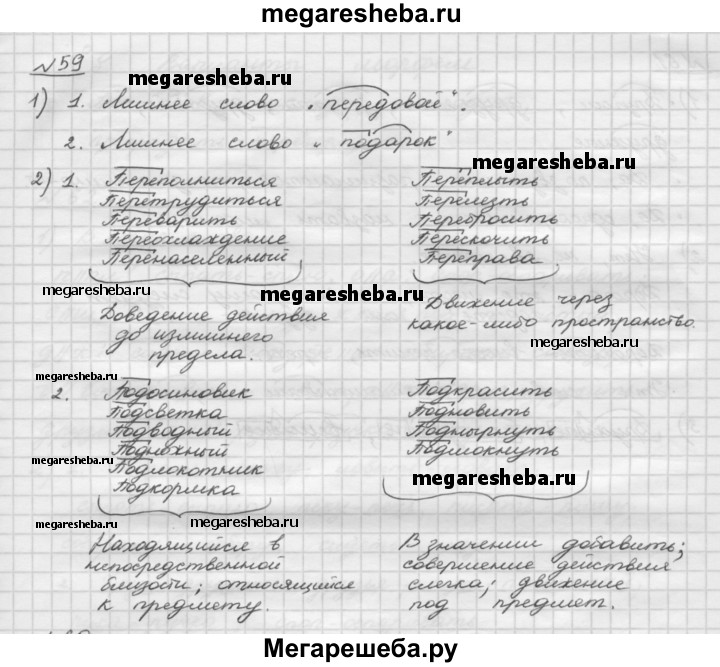 megaresheba.ru
№59
megaresheba.ru
1) 1. Лишнее слово „передовой".
2. Лишнее слово „подарок"
megaresheba.ru
2) 1. Переполниться
Перетрудиться
Переварить
Переохлаждение
Перенаселенный
Переплыть
Перелезть
Перебросить
Перескочить
Переправа.
megaresheba.ru
megaresheba.ru
Доведение действия
до излишнего
предела.
Движение через
какое-либо пространство.
megaresheba.ru
megaresheba.ru
2. Подосиновик
Подсветка
Подводный
Подножный
Подлокотник
Подкормка
Подкрасить
Подновить
Поднырнуть
Подмокнуть
megaresheba.ru
megaresheba.ru
megaresheba.ru
megaresheba.ru
Находящийся в
непосредственной
близости; относящийся
к предмету.
В значении добавить;
совершение действия
слегка; движение
под предмет.
Мегарешеба.ру